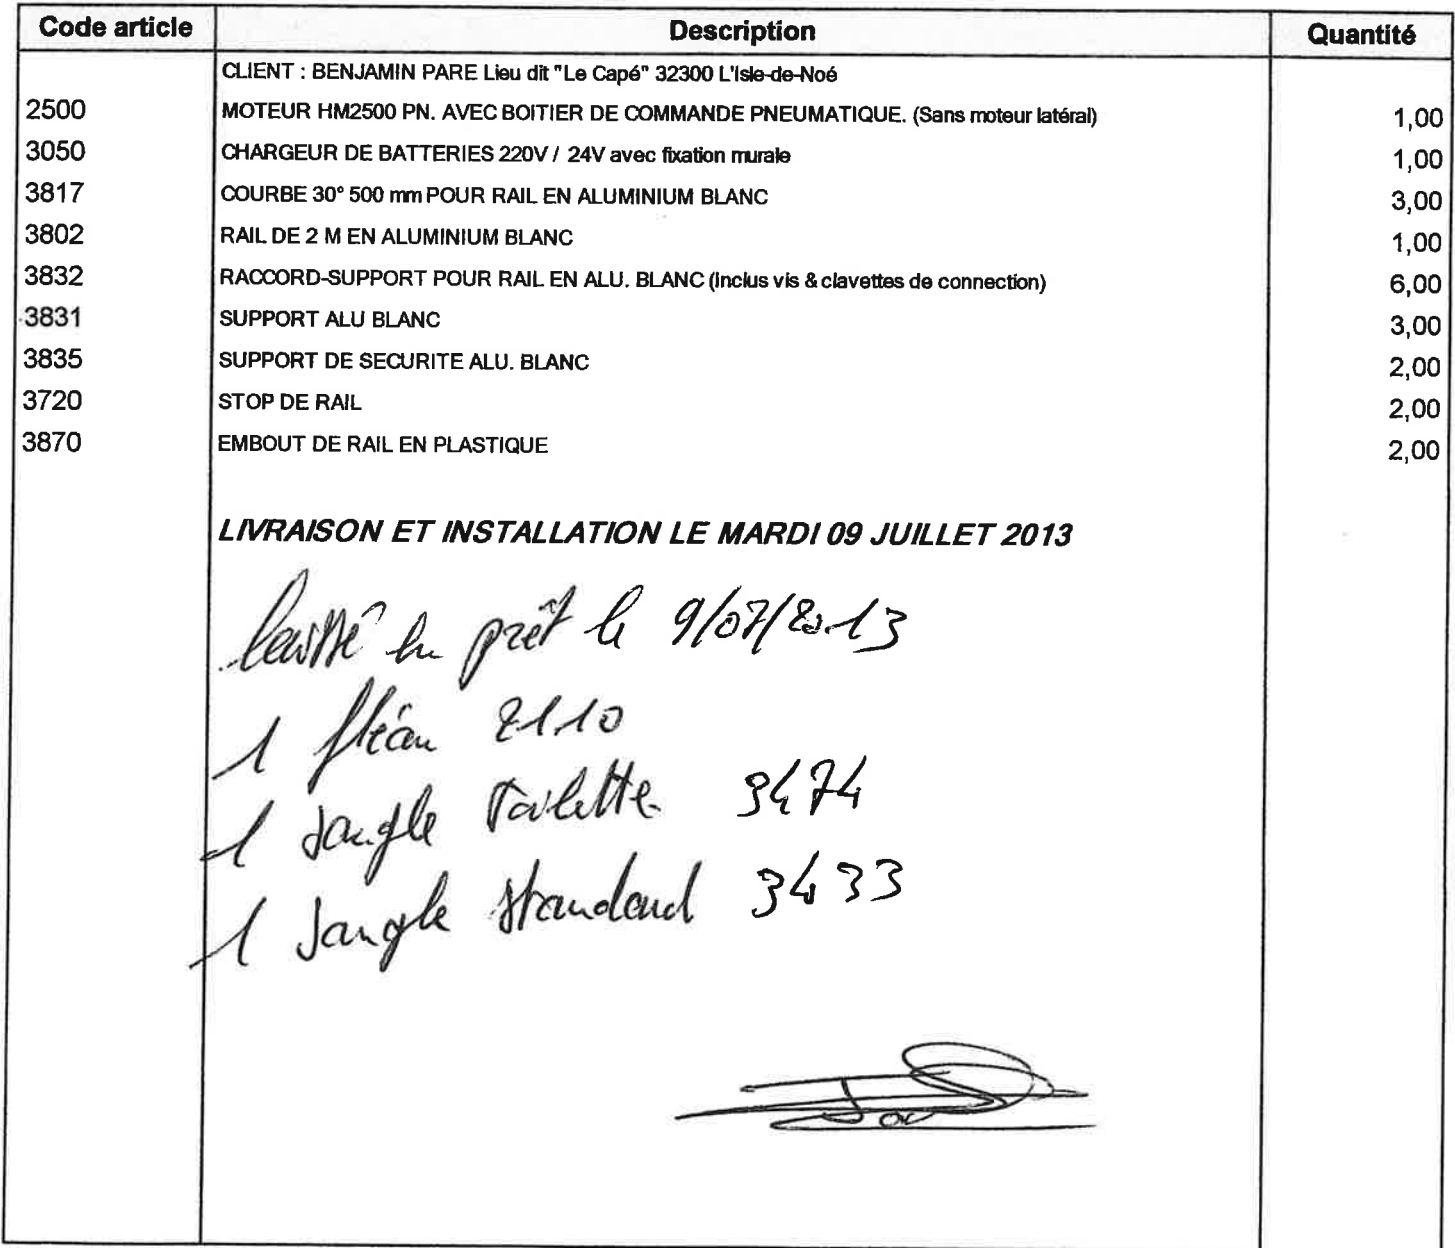 Code article Description Quantité
CLIENT : BENJAMIN PARE Lieu dit "Le Capé" 32300 L'Isle-de-Noé
2500 MOTEUR HM2500 PN. AVEC BOITIER DE COMMANDE PNEUMATIQUE. (Sans moteur latéral) 1,00
3050 CHARGEUR DE BATTERIES 220V / 24V avec fixation murale 1,00
3817 COURBE 30° 500 mm POUR RAIL EN ALUMINIUM BLANC 3,00
3802 RAIL DE 2 M EN ALUMINIUM BLANC 1,00
3832 RACCORD-SUPPORT POUR RAIL EN ALU. BLANC (Inclus vis & clavettes de connection) 6,00
3831 SUPPORT ALU BLANC 3,00
3835 SUPPORT DE SECURITE ALU. BLANC 2,00
3720 STOP DE RAIL 2,00
3870 EMBOUT DE RAIL EN PLASTIQUE 2,00
LIVRAISON ET INSTALLATION LE MARDI 09 JUILLET 2013
laissé en prêt le 9/07/2013
1 fléau 2110
1 sangle toilette 3474
1 sangle standard 3433